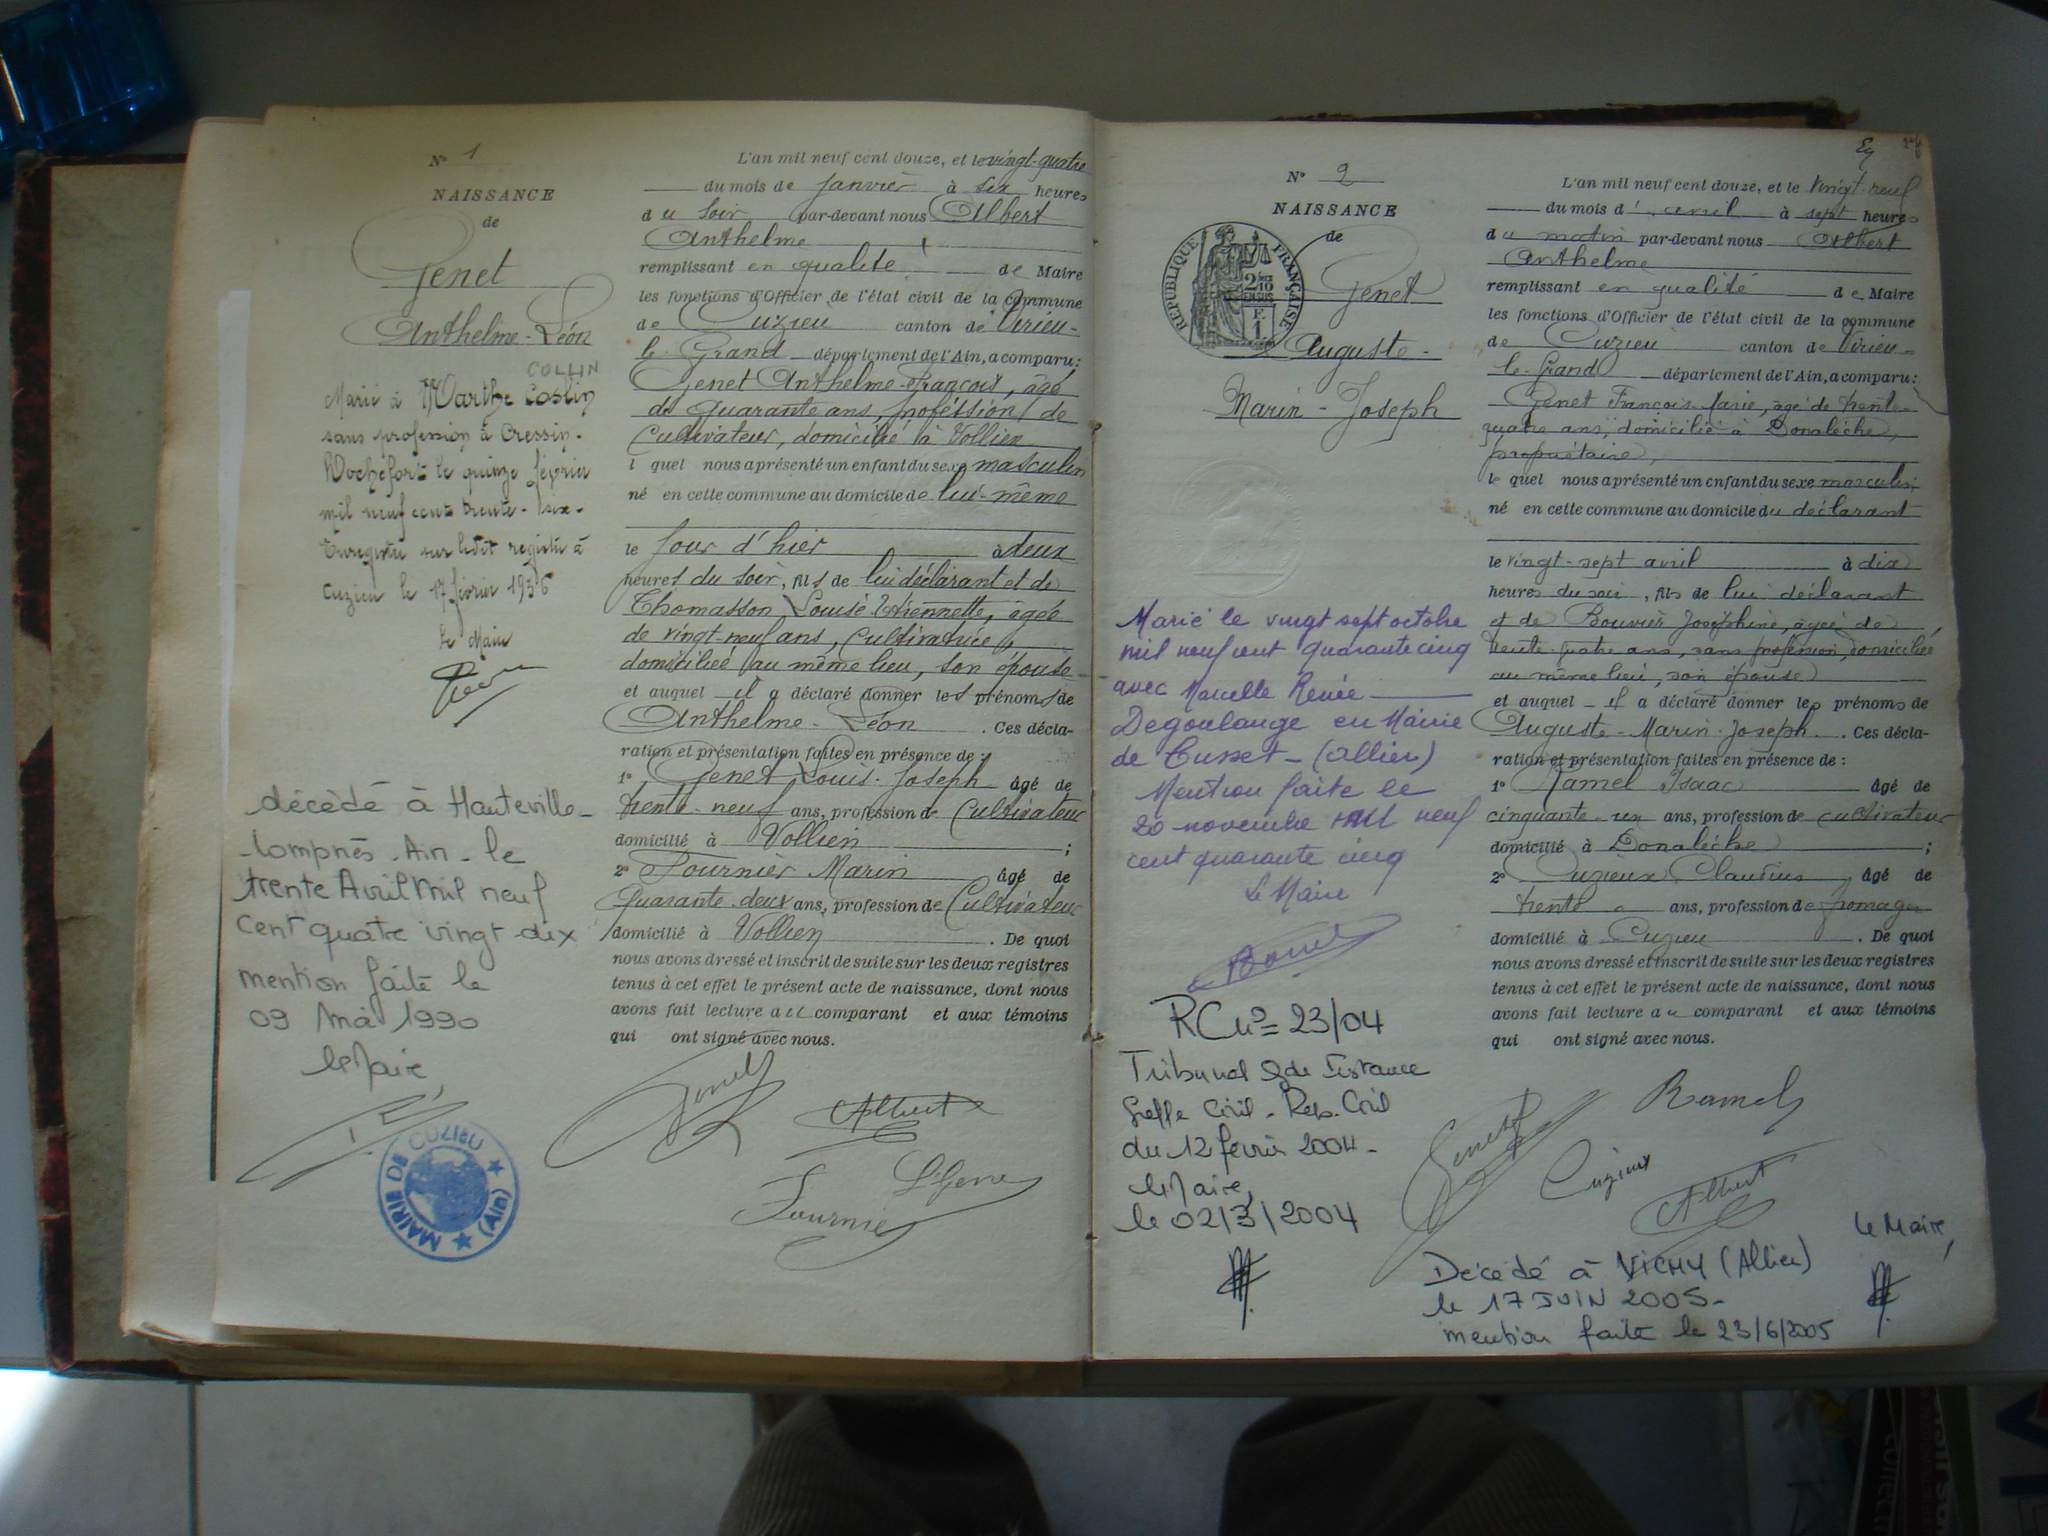 N° 1
NAISSANCE
de
Genet
Anthelme-Léon
COLLIN
Marié à Marthe Coslin
sans profession à Cressin-
Rochefort le quinze février
mil neuf cent trente-six-
Enregistré sur ledit registre à
Cuzieu le 17 février 1936
Le Maire
décèdé à Hauteville-
Lompnès-Ain-le
trente Avril mil neuf
cent quatre vingt-dix
mention faite le
09 Mai 1990
le Maire,
MAIRIE DE CUZIEU
(Ain)
L'an mil neuf cent douze, et le vingt-quatre
du mois de janvier à six heures
du soir par-devant nous Albert
Anthelme
remplissant en qualité de Maire
les fonctions d'Officier de l'état civil de la commune
de Cuzieu canton de Virieu-
le-Grand département de l'Ain, a comparu:
Genet Anthelme-François, âgé
de quarante ans, proféssion de
Cultivateur, domicilié à Vollien
l quel nous a présenté un enfant du sexe masculin
né en cette commune au domicile de lui-même
le jour d'hier à deux
heures du soir, fils de lui déclarant et de
Thomasson Louise Etiennette, agée
de vingt-neuf ans, Cultivatrice,
domiciliée au même lieu, son épouse
et auquel il a déclaré donner les prénoms de
Anthelme-Léon. Ces décla-
ration et présentation faites en présence de:
1° Genet Louis-Joseph âgé de
trente-neuf ans, profession de Cultivateur
domicilié à Vollien;
2° Fournier Marin âgé de
Quarante-deux ans, profession de Cultivateur
domicilié à Vollien. De quoi
nous avons dressé et inscrit de suite sur les deux registres
tenus à cet effet le présent acte de naissance, dont nous
avons fait lecture au comparant et aux témoins
qui ont signé avec nous.
Genet
Albert
L Genet
Fournier
N° 2
NAISSANCE
de
RÉPUBLIQUE FRANÇAISE
Genet
Auguste-
Marin-Joseph
Marié le vingt sept octobre
mil neuf cent quarante cinq
avec Marcelle Renée
Degoulange en Mairie
de Cusset-(Allier)
Mention faite le
20 novembre mil neuf
cent quarante cinq
Le Maire
RC n° 23/04
Tribunal Gde Instance
Greffe Civil-Rep. Civil
du 12 février 2004-
le Maire,
le 02/3/2004
L'an mil neuf cent douze, et le vingt-neuf
du mois d'avril à sept heures
du matin par-devant nous Albert
Anthelme
remplissant en qualité de Maire
les fonctions d'Officier de l'état civil de la commune
de Cuzieu canton de Virieu-
le-Grand département de l'Ain, a comparu:
Genet François-Marie, âgé de trente-
quatre ans, domicilié à Donalèche,
propriétaire,
le quel nous a présenté un enfant du sexe masculin
né en cette commune au domicile du déclarant
le vingt-sept avril à dix
heures du soir, fils de lui déclarant
et de Bouvier Joséphine, agée de
trente-quatre ans, sans profession, domiciliée
au même lieu, son épouse
et auquel il a déclaré donner les prénoms de
Auguste-Marin-Joseph. Ces décla-
ration et présentation faites en présence de:
1° Ramel Isaac âgé de
cinquante-un ans, profession de cultivateur
domicilié à Donalèche;
2° Cuzieux Claudius âgé de
trente ans, profession de fromager
domicilié à Cuzieu. De quoi
nous avons dressé et inscrit de suite sur les deux registres
tenus à cet effet le présent acte de naissance, dont nous
avons fait lecture au comparant et aux témoins
qui ont signé avec nous.
Ramel
Genet
Cuzieux
Albert
Le Maire,
Décédé à VICHY (Allier)
le 17 JUIN 2005-
mention faite le 23/6/2005